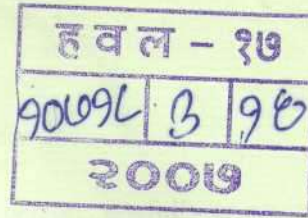 हवल – १७
१०७१८ ३ १७
२००७